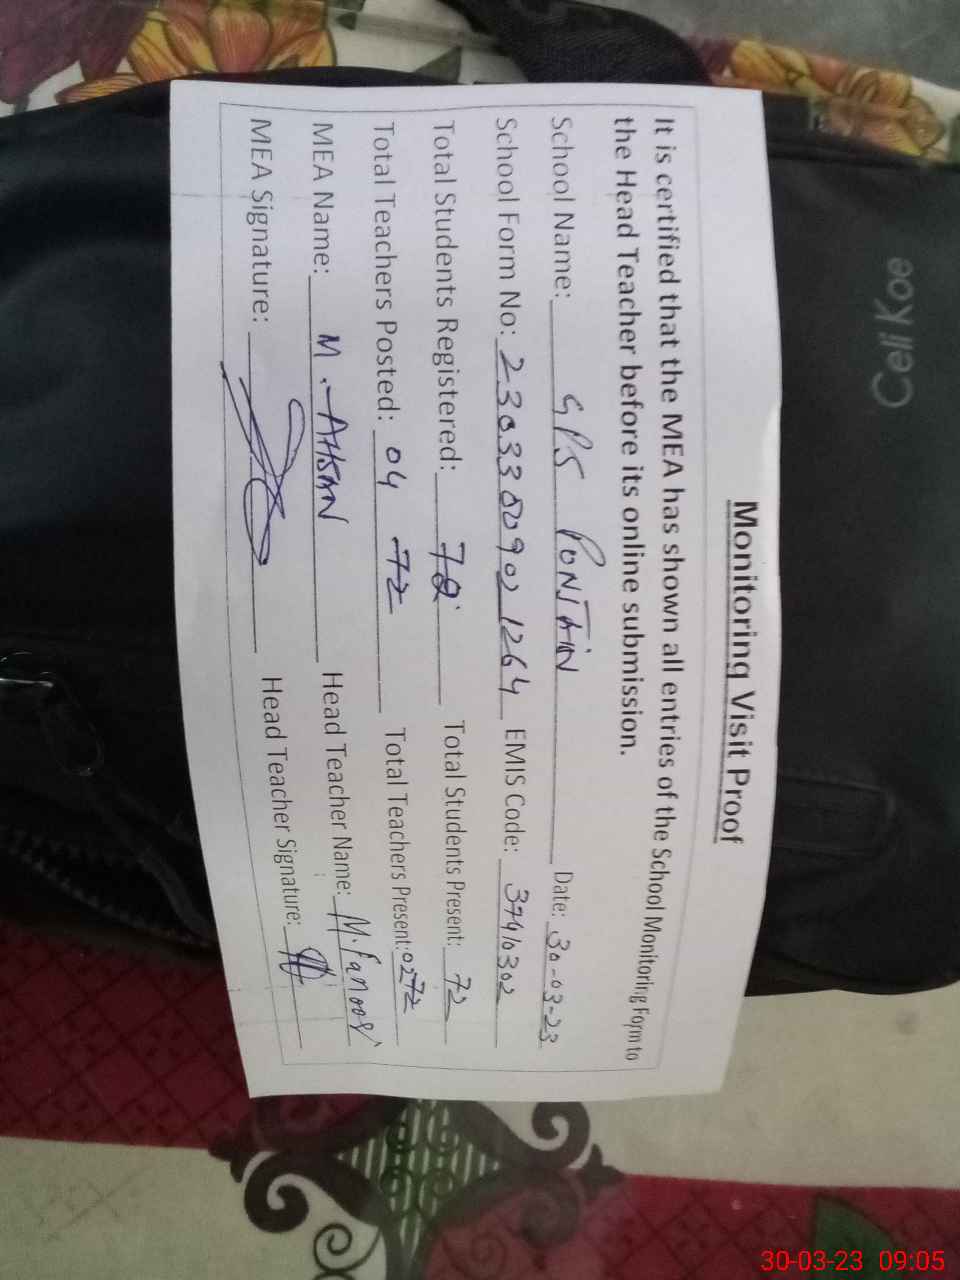 Cellkoe
Monitoring Visit Proof
It is certified that the MEA has shown all entries of the School Monitoring Form to
the Head Teacher before its online submission.
School Name: GPS PONTAIN Date: 30-03-23
School Form No: 23033809021264 EMIS Code: 37410302
Total Students Registered: 72 Total Students Present: 72
Total Teachers Posted: 04 72 Total Teachers Present: 02 72
MEA Name: M. AHSAN Head Teacher Name: M. Fanoos
MEA Signature: Head Teacher Signature:
30-03-23 09:05